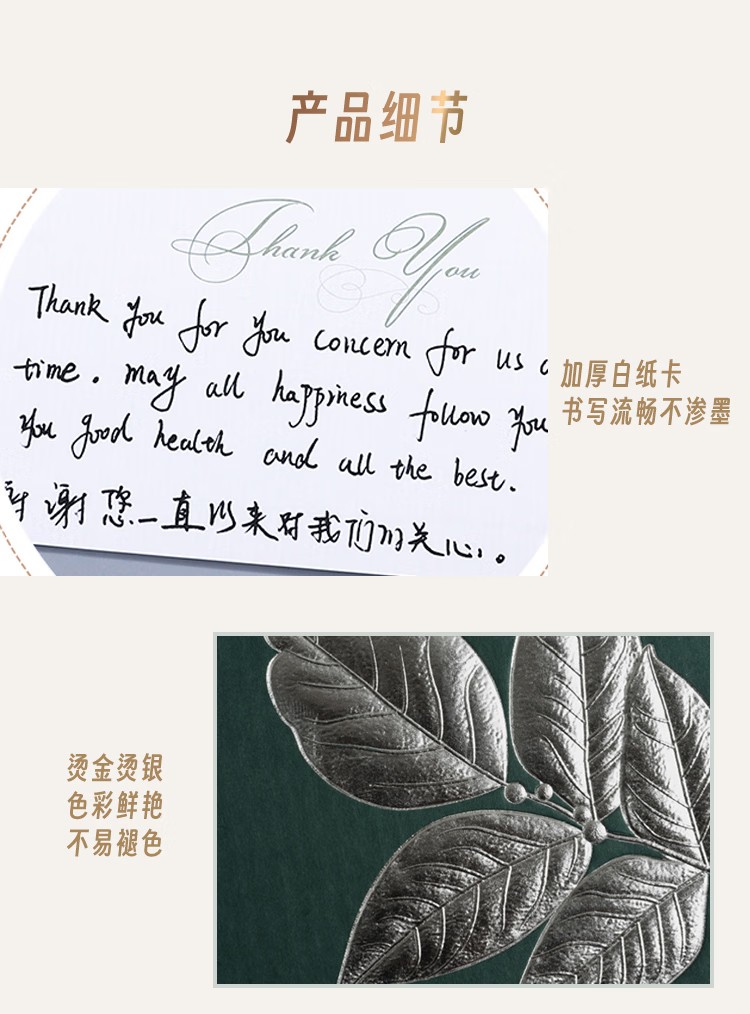 产品细节
Thank You
Thank you for you concern for us
time. may all happiness follow you
you good health and all the best.
谢您一直以来对我们的关心。
加厚白纸卡
书写流畅不渗墨
烫金烫银
色彩鲜艳
不易褪色